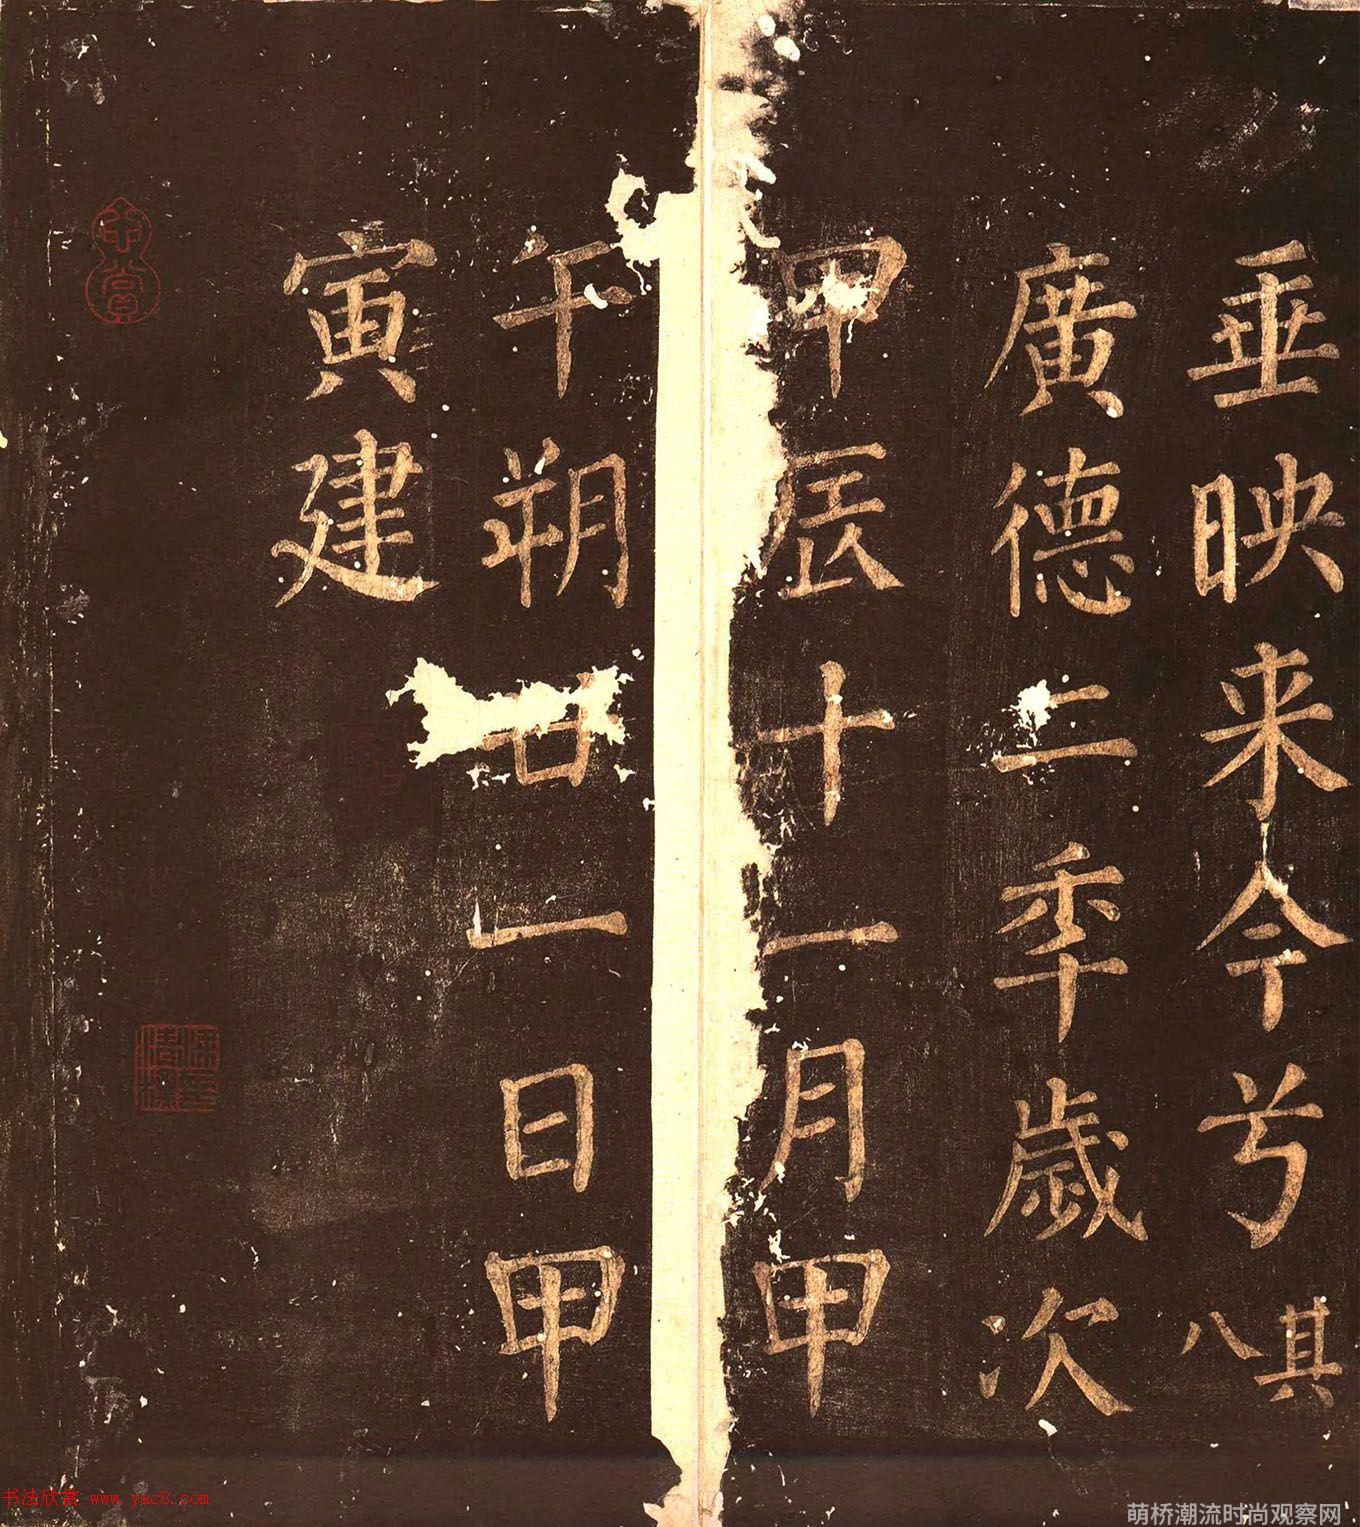 垂映来今兮其八
廣德二秊歲次
甲辰十一月甲
午朔廿一日甲
寅建
书法欣赏 www.yac8.com
萌桥潮流时尚观察网